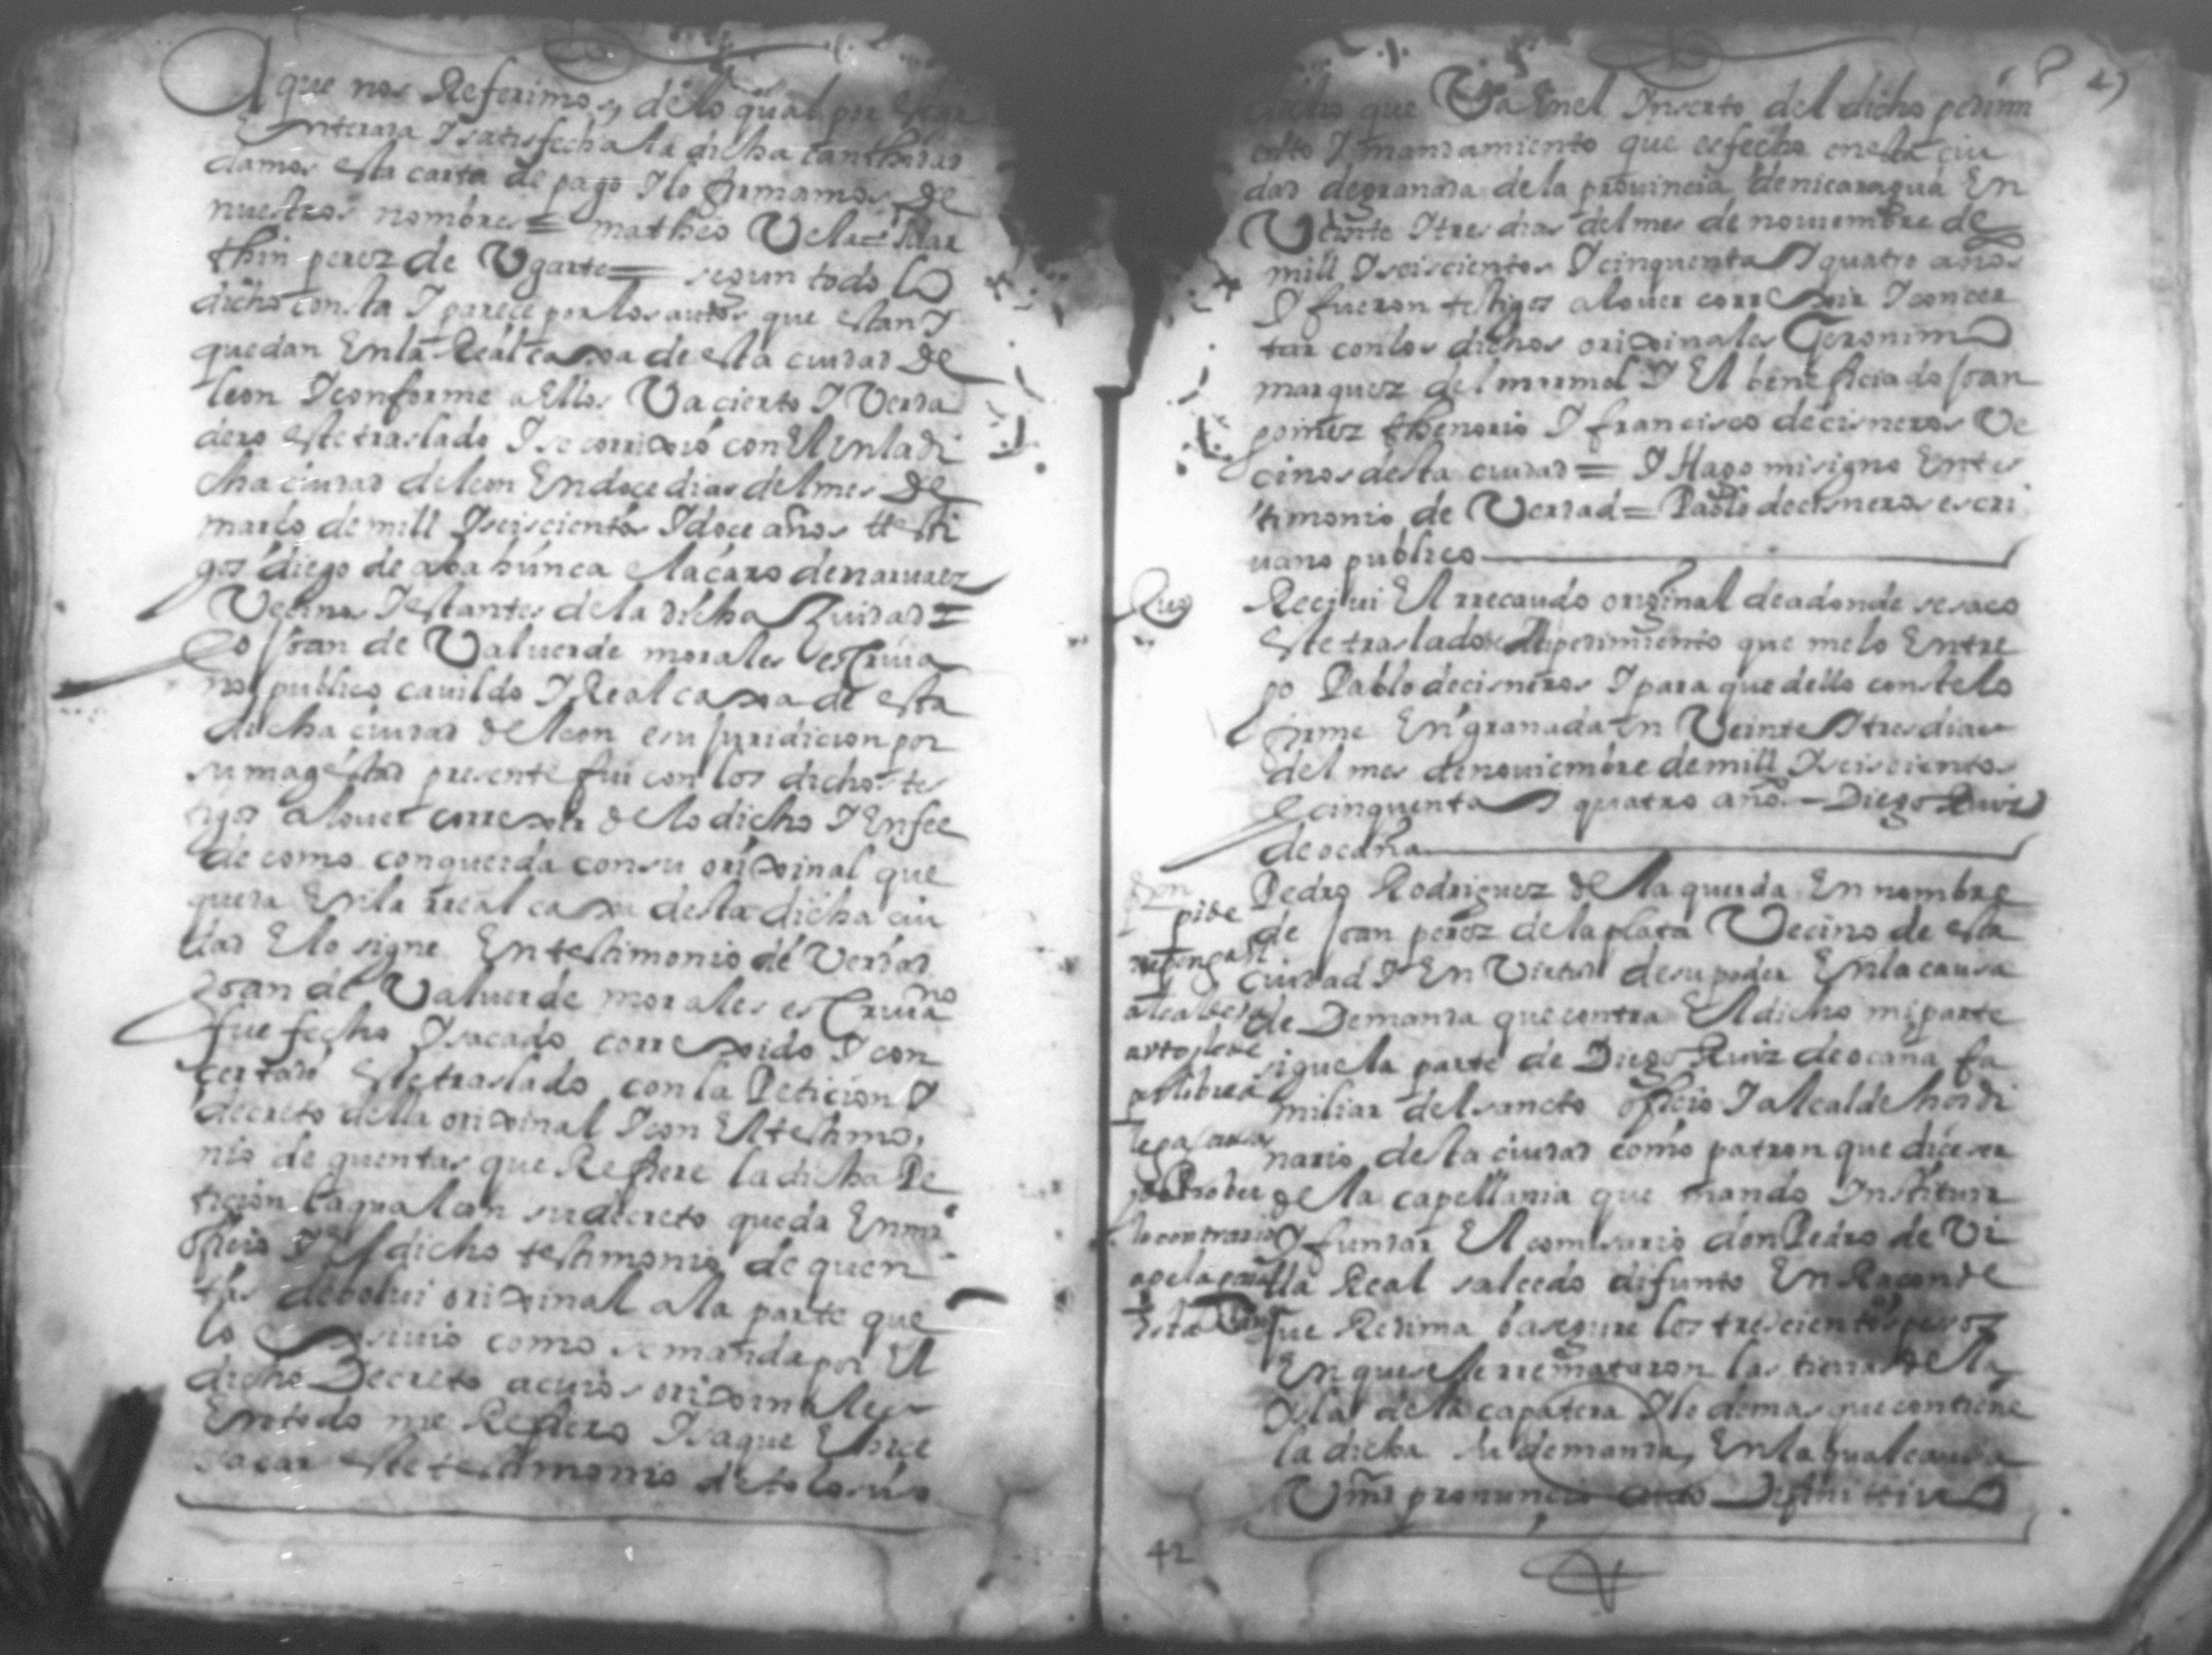 A que nos Referimos, de lo qual por estar
Enterada I satisfecha la dicha cantidad
damos esta carta de pago I lo firmamos de
nuestros nombres = matheo Vela = Mar
thin perez de Vgarte = segun todo lo
dicho consta I parece por los autos que estan I
quedan En la Real caxa de esta ciudad de
leon I conforme a Ellos Va cierto I Verda
dero este traslado I se corrixio con El en la di
cha ciudad de leon En doce dias del mes de
março de mill I seiscientos I doce años testi
gos diego de e lacaro de narvaez
Vecinos I estantes de la dicha Ziudad =
Io Joan de Valuerde morales escriua
no publico cauildo I Real caxa de esta
dicha ciudad de leon e su juridicion por
su magestad presente fui con los dichos tes
tigos a lo uer correxir de lo dicho I En fee
de como conquerda con su orixinal que
queda En la rreal caxa desta dicha ciu
dad E lo signe En testimonio de Verdad
Joan de Valuerde morales escriuano
fue fecho I sacado correxido I con
certado este traslado con la Peticion I
decreto della orixinal I con El testimo
nio de quentas que Refiere la dicha Pe
ticion la qual con su decreto queda En mi
oficio I el dicho testimonio de quen
tas debolui orixinal a la parte que
lo como se manda por El
dicho Decreto a cuios orixinales
En todo me Refiero I saque E hice
sacar este testimonio de to lo suso
dicho que Va En el Inserto del dicho pedim
ento I mandamiento que es fecho en esta ciu
dad de granada de la prouincia de nicaragua En
Veinte I tres dias del mes de nouiembre de
mill I seiscientos I cinquenta I quatro años
I fueron testigos a lo uer correxir I concer
tar con los dichos orixinales Geronimo
marquez del marmol I El beneficiado Joan
gomez thenorio I francisco de cisneros Ve
cinos desta ciudad = I Hago mi signo En tes
timonio de Verdad = Pablo de cisneros escri
uano publico
Reciui El rrecaudo original de adonde se saco
este traslado de pedimiento que me lo Entre
go Pablo de cisneros I para que dello conste lo
firme En granada En Veinte I tres dias
del mes de nouiembre de mill I seiscientos
e cinquenta I quatro años — Diego Ruiz
de ocaña
pide
Pedro Rodriguez de la querda En nombre
de Joan perez de la plata Vecino de esta
ciudad I En Virtud de su poder En la causa
de Demanda que contra El dicho mi parte
sigue la parte de Diego Ruiz de ocaña fa
miliar del sancto oficio I alcalde hordi
nario desta ciudad como patron que dice ser
de la capellania que mando Instituir
lo contrario
I fundar El comisario don Pedro de Vi
apela para
lla Real salcedo difunto En Racon de
que Redima o asegure los trescientos pesos
En que se le rremataron las tierras de la
Isla de la capatera I lo demas que contiene
la dicha su demanda, En la qual causa
Vmd pronuncio auto Definitivo
42